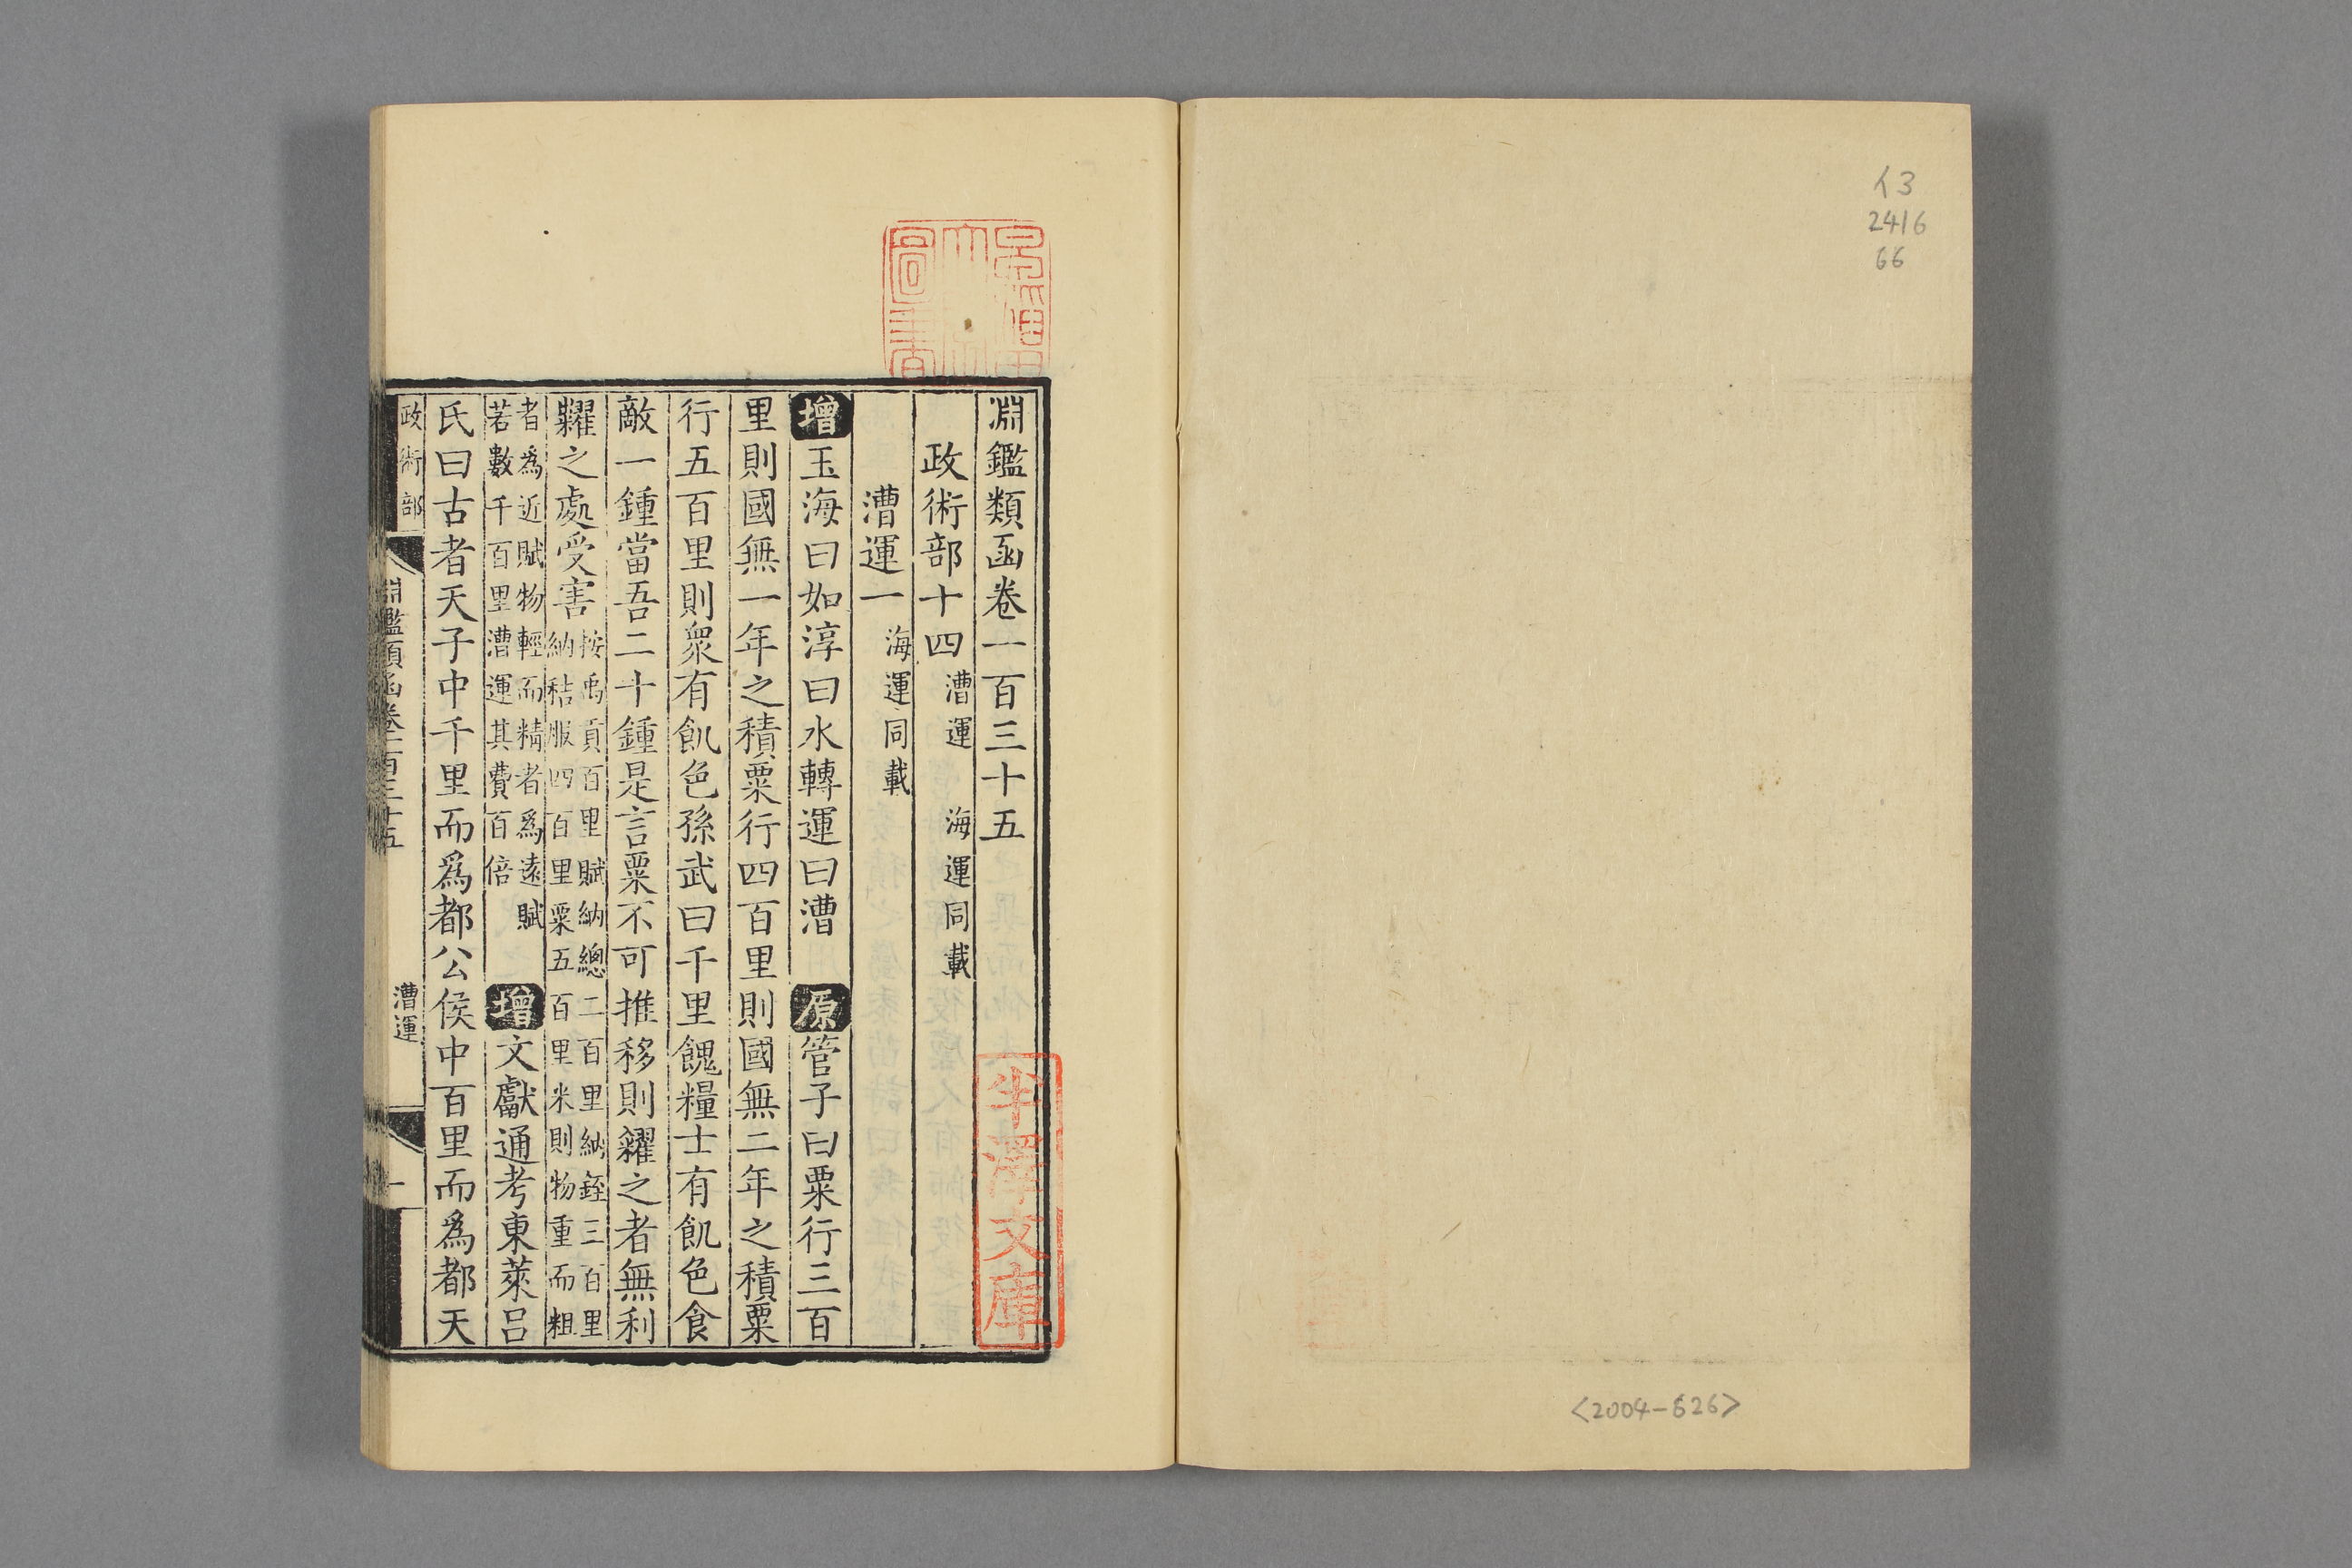 イ3
2416
66
<2004-626>
淵鑑類函卷一百三十五
政術部十四 漕運 海運同載
漕運一 海運同載
增玉海曰如淳曰水轉運曰漕 原管子曰粟行三百
里則國無一年之積粟行四百里則國無二年之積粟
行五百里則衆有飢色孫武曰千里餽糧士有飢色食
敵一鍾當吾二十鍾是言粟不可推移則糴之者無利
糶之處受害 按禹貢百里賦納總二百里納銍三百里
納秸服四百里粟五百里米則物重而粗
者爲近賦物輕而精者爲遠賦
若數千百里漕運其費百倍 增文獻通考東萊呂
氏曰古者天子中千里而爲都公侯中百里而爲都天
政術部
淵鑑類函卷一百三十五
漕運
一
早稲田大學圖書
半澤文庫